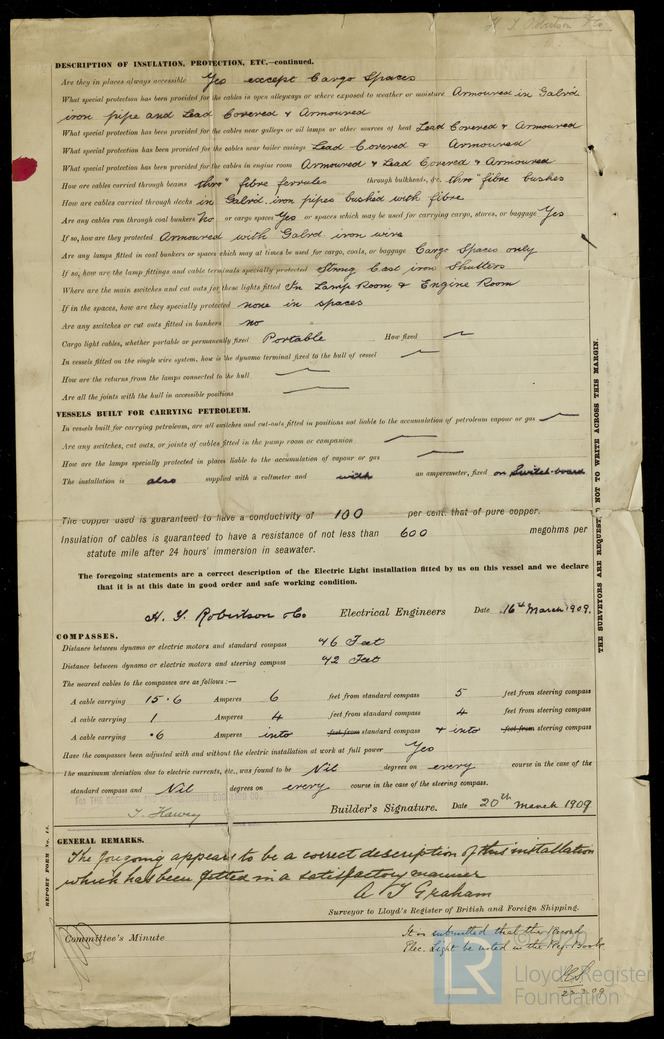 H. Y. Robertson & Co
DESCRIPTION OF INSULATION, PROTECTION, ETC.—continued.
Are they in places always accessible Yes except Cargo Spaces
What special protection has been provided for the cables in open alleyways or where exposed to weather or moisture Armoured in Galvd
iron pipe and Lead Covered & Armoured
What special protection has been provided for the cables near galleys or oil lamps or other sources of heat Lead Covered & Armoured
What special protection has been provided for the cables near boiler casings Lead Covered & Armoured
What special protection has been provided for the cables in engine room Armoured & Lead Covered & Armoured
How are cables carried through beams thro" fibre ferrules through bulkheads, &c. thro" fibre bushes
How are cables carried through decks in Galvd. iron pipes bushed with fibre
Are any cables run through coal bunkers No or cargo spaces Yes or spaces which may be used for carrying cargo, stores, or baggage Yes
If so, how are they protected Armoured with Galvd iron wire
Are any lamps fitted in coal bunkers or spaces which may at times be used for cargo, coals, or baggage Cargo Spaces only
If so, how are the lamp fittings and cable terminals specially protected Strong Cast iron Shutters
Where are the main switches and cut outs for these lights fitted In Lamp Room & Engine Room
If in the spaces, how are they specially protected none in spaces
Are any switches or cut outs fitted in bunkers no
Cargo light cables, whether portable or permanently fixed Portable How fixed
In vessels fitted on the single wire system, how is the dynamo terminal fixed to the hull of vessel
How are the returns from the lamps connected to the hull
Are all the joints with the hull in accessible positions
VESSELS BUILT FOR CARRYING PETROLEUM.
In vessels built for carrying petroleum, are all switches and cut-outs fitted in positions not liable to the accumulation of petroleum vapour or gas
Are any switches, cut outs, or joints of cables fitted in the pump room or companion
How are the lamps specially protected in places liable to the accumulation of vapour or gas
The installation is also supplied with a voltmeter and with an amperemeter, fixed on Switch-board
The copper used is guaranteed to have a conductivity of 100 per cent. that of pure copper.
Insulation of cables is guaranteed to have a resistance of not less than 600 megohms per
statute mile after 24 hours' immersion in seawater.
The foregoing statements are a correct description of the Electric Light installation fitted by us on this vessel and we declare
that it is at this date in good order and safe working condition.
H. Y. Robertson & Co Electrical Engineers Date 16th March 1909.
COMPASSES.
Distance between dynamo or electric motors and standard compass 46 Feet
Distance between dynamo or electric motors and steering compass 42 Feet
The nearest cables to the compasses are as follows:—
A cable carrying 15.6 Amperes 6 feet from standard compass 5 feet from steering compass
A cable carrying 1 Amperes 4 feet from standard compass 4 feet from steering compass
A cable carrying .6 Amperes into feet from standard compass & into feet from steering compass
Have the compasses been adjusted with and without the electric installation at work at full power Yes
The maximum deviation due to electric currents, etc., was found to be Nil degrees on every course in the case of the
standard compass and Nil degrees on every course in the case of the steering compass.
Builder's Signature. Date 20th March 1909
GENERAL REMARKS.
The foregoing appears to be a correct description of this installation
which has been fitted in a satisfactory manner
A T Graham
Surveyor to Lloyd's Register of British and Foreign Shipping.
Committee's Minute
It is submitted that the Record
Elec. Light be noted in the Reg. Book
23.3.09
REPORT FORM No. 13.
THE SURVEYORS ARE REQUESTED NOT TO WRITE ACROSS THIS MARGIN.
© 2020
LR
Lloyd's Register
Foundation